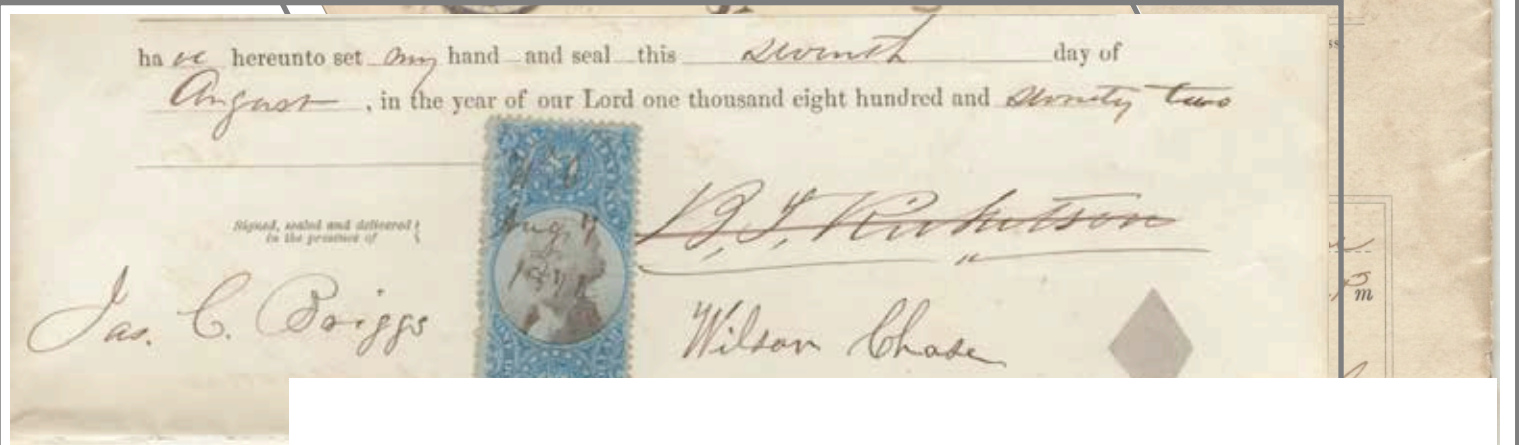 ha ve hereunto set my hand and seal this seventh day of
August , in the year of our Lord one thousand eight hundred and seventy two
Signed, sealed and delivered
in the presence of
Aug. 7
1872
B. F. Ricketson
Jas. C. Briggs
Wilson Chase
m